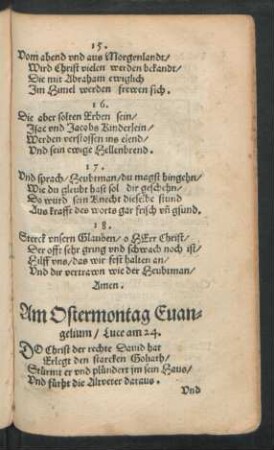 15.
Vom abend vnd aus Morgenlandt/
Wird Christ vielen werden bekandt/
Die mit Abraham ewiglich
Im Himel werden frewen sich.
16.
Die aber solten Erben sein/
Isac vnd Jacobs Kinderlein/
Werden verstossen ins elend/
Vnd sein ewige Hellenbrend.
17.
Vnd sprach/ Heubtman/ du magst hingehn/
Wie du gleubt hast sol dir geschehn/
Do ward sein Knecht dieselbe stund
Aus krafft des worts gar frisch vñ gsund.
18.
Sterck vnsern Glauben/ o HErr Christ/
Der offt sehr gring vnd schwach noch ist/
Hilff vns/ das wir fest halten an/
Vnd dir vertrawn wie der Heubtman/
Amen.
Am Ostermontag Euan-
gelium / Luce am 24.
DO Christ der rechte Dauid hat
Erlegt den starcken Goliath/
Stürmt er vnd plündert jm sein Haus/
Vnd fürht die Altveter daraus.
Vnd